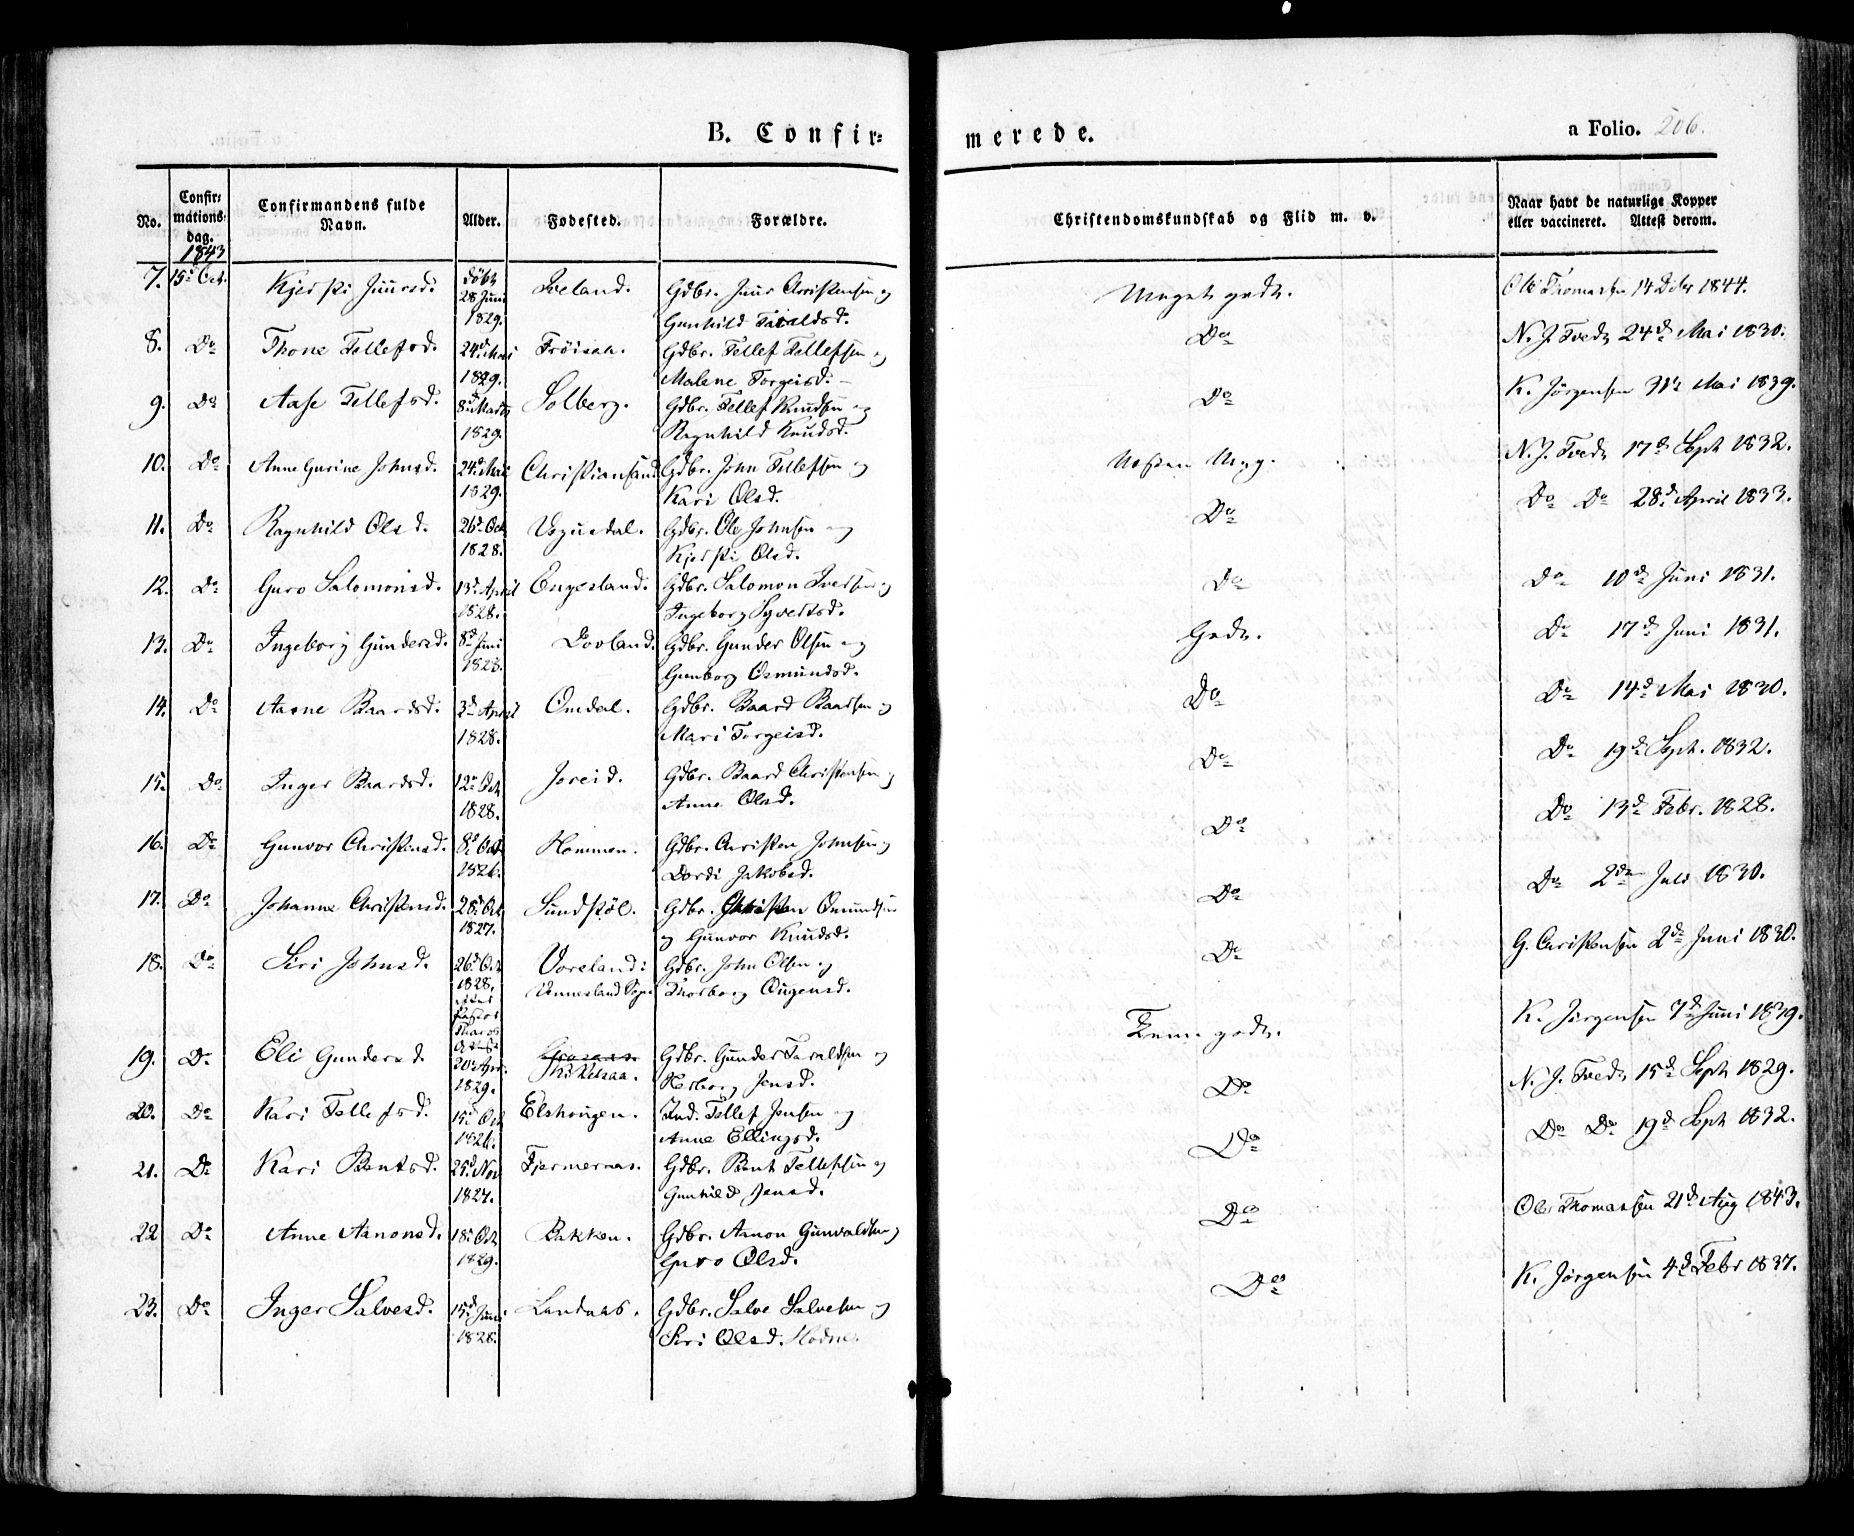 B. Confir=
merede.
a Folio. 206.
No.
Confir=
mations=
dag.
Confirmandens fulde
Navn.
Alder.
Fødested.
Forældre.
Christendomskundskab og Flid m. v.
Naar havt de naturlige Kopper
eller vaccineret. Attest derom.
1843
7. 15d Oct. Kjersti Juursd. døbt 28 Juni 1829. Iveland. Gdbr. Juur Christensen og
Gunhild Taraldsd.
Meget godt. Ole Thomassen 14 Dcbr 1844.
8. Do Thone Tellefsd. 24d Mai 1829. Frøisaa. Gdbr. Tellef Tellefsen og
Malene Torgeisd.
Do N. J. Tvedt 24d Mai 1830.
9. Do Aase Tellefsd. 8d Marts 1829. Solberg. Gdbr. Tellef Knudsen og
Ragnhild Knudsd.
Do K. Jørgensen Mai 1839.
10. Do Anne Gurine Johnsd. 24d Mai 1829. Christiansand Gdbr. John Tellefsen og
Kari Olsd.
Næsten Meg. N. J. Tvedt 17d Sept 1832.
11. Do Ragnhild Olsd. 26d Oct 1828. Gdbr. Ole Johnsen og
Kjersti Olsd.
Do Do Do 28d April 1833.
12. Do Guro Salomonsd. 13d April 1828. Engesland. Gdbr. Salomon Iversen og
Ingeborg Syvertsd.
Do Do 10d Juni 1831.
13. Do Ingeborg Gundersd. 8d Juni 1828. Dovland. Gdbr. Gunder Olsen og
Gunborg Osmundsd.
Godt. Do 17d Juni 1831.
14. Do Aasne Baardsd. 3d April 1828. Omdal. Gdbr. Baard Baardsen og
Mari Torgeisd.
Do Do 14d Mai 1830.
15. Do Inger Baardsd. 12d Oct 1828. Joreid. Gdbr. Baard Christensen og
Anne Olsd.
Do Do 19d Sept. 1832.
16. Do Gunvor Christensd. 8d Oct 1826. Hommen. Gdbr. Christen Johnsen og
Dordi Jakobsd.
Do Do 13d Febr. 1828.
17. Do Johanne Christensd. 28d Oct 1827. Sundstøl. Gdbr. Christen Omundsen
og Gunvor Knudsd.
Do Do 2den Juli 1830.
18. Do Siri Johnsd. 26d Oct 1828. Voreland: Gdbr. John Olsen og
Vennesland Sogn Thorborg Ougensd.
Do G. Christensen 2d Juni 1830.
19. Do Eli Gundersd. 20d Apr. 1829. Gdbr. Gunder Taraldsen og
Herborg Jensd.
Temm. godt. K. Jørgensen 7d Juni 1839.
20. Do Kari Tellefsd. 15d Oct 1826. Elshougen. Ind. Tellef Jensen og
Anne Ellingsd.
Do N. J. Tvedt 15d Sept 1829.
21. Do Kari Bentsd. 25d Nov 1827. Fjermernas. Gdbr. Bent Tellefsen og
Gunhild Jensd.
Do Do Do 19d Sept 1832.
22 Do Anne Aanonsd. 18d Oct 1829. Bakken. Gdbr. Aanon Gunvaldsen og
Guro Olsd.
Do Ole Thomassen 21d Aug 1843.
23. Do Inger Salvesd. 15d Juni 1828. Landaas. Gdbr. Salve Salvesen og
Siri Olsd. Hodne.
Do K. Jørgensen 4d Febr 1837.